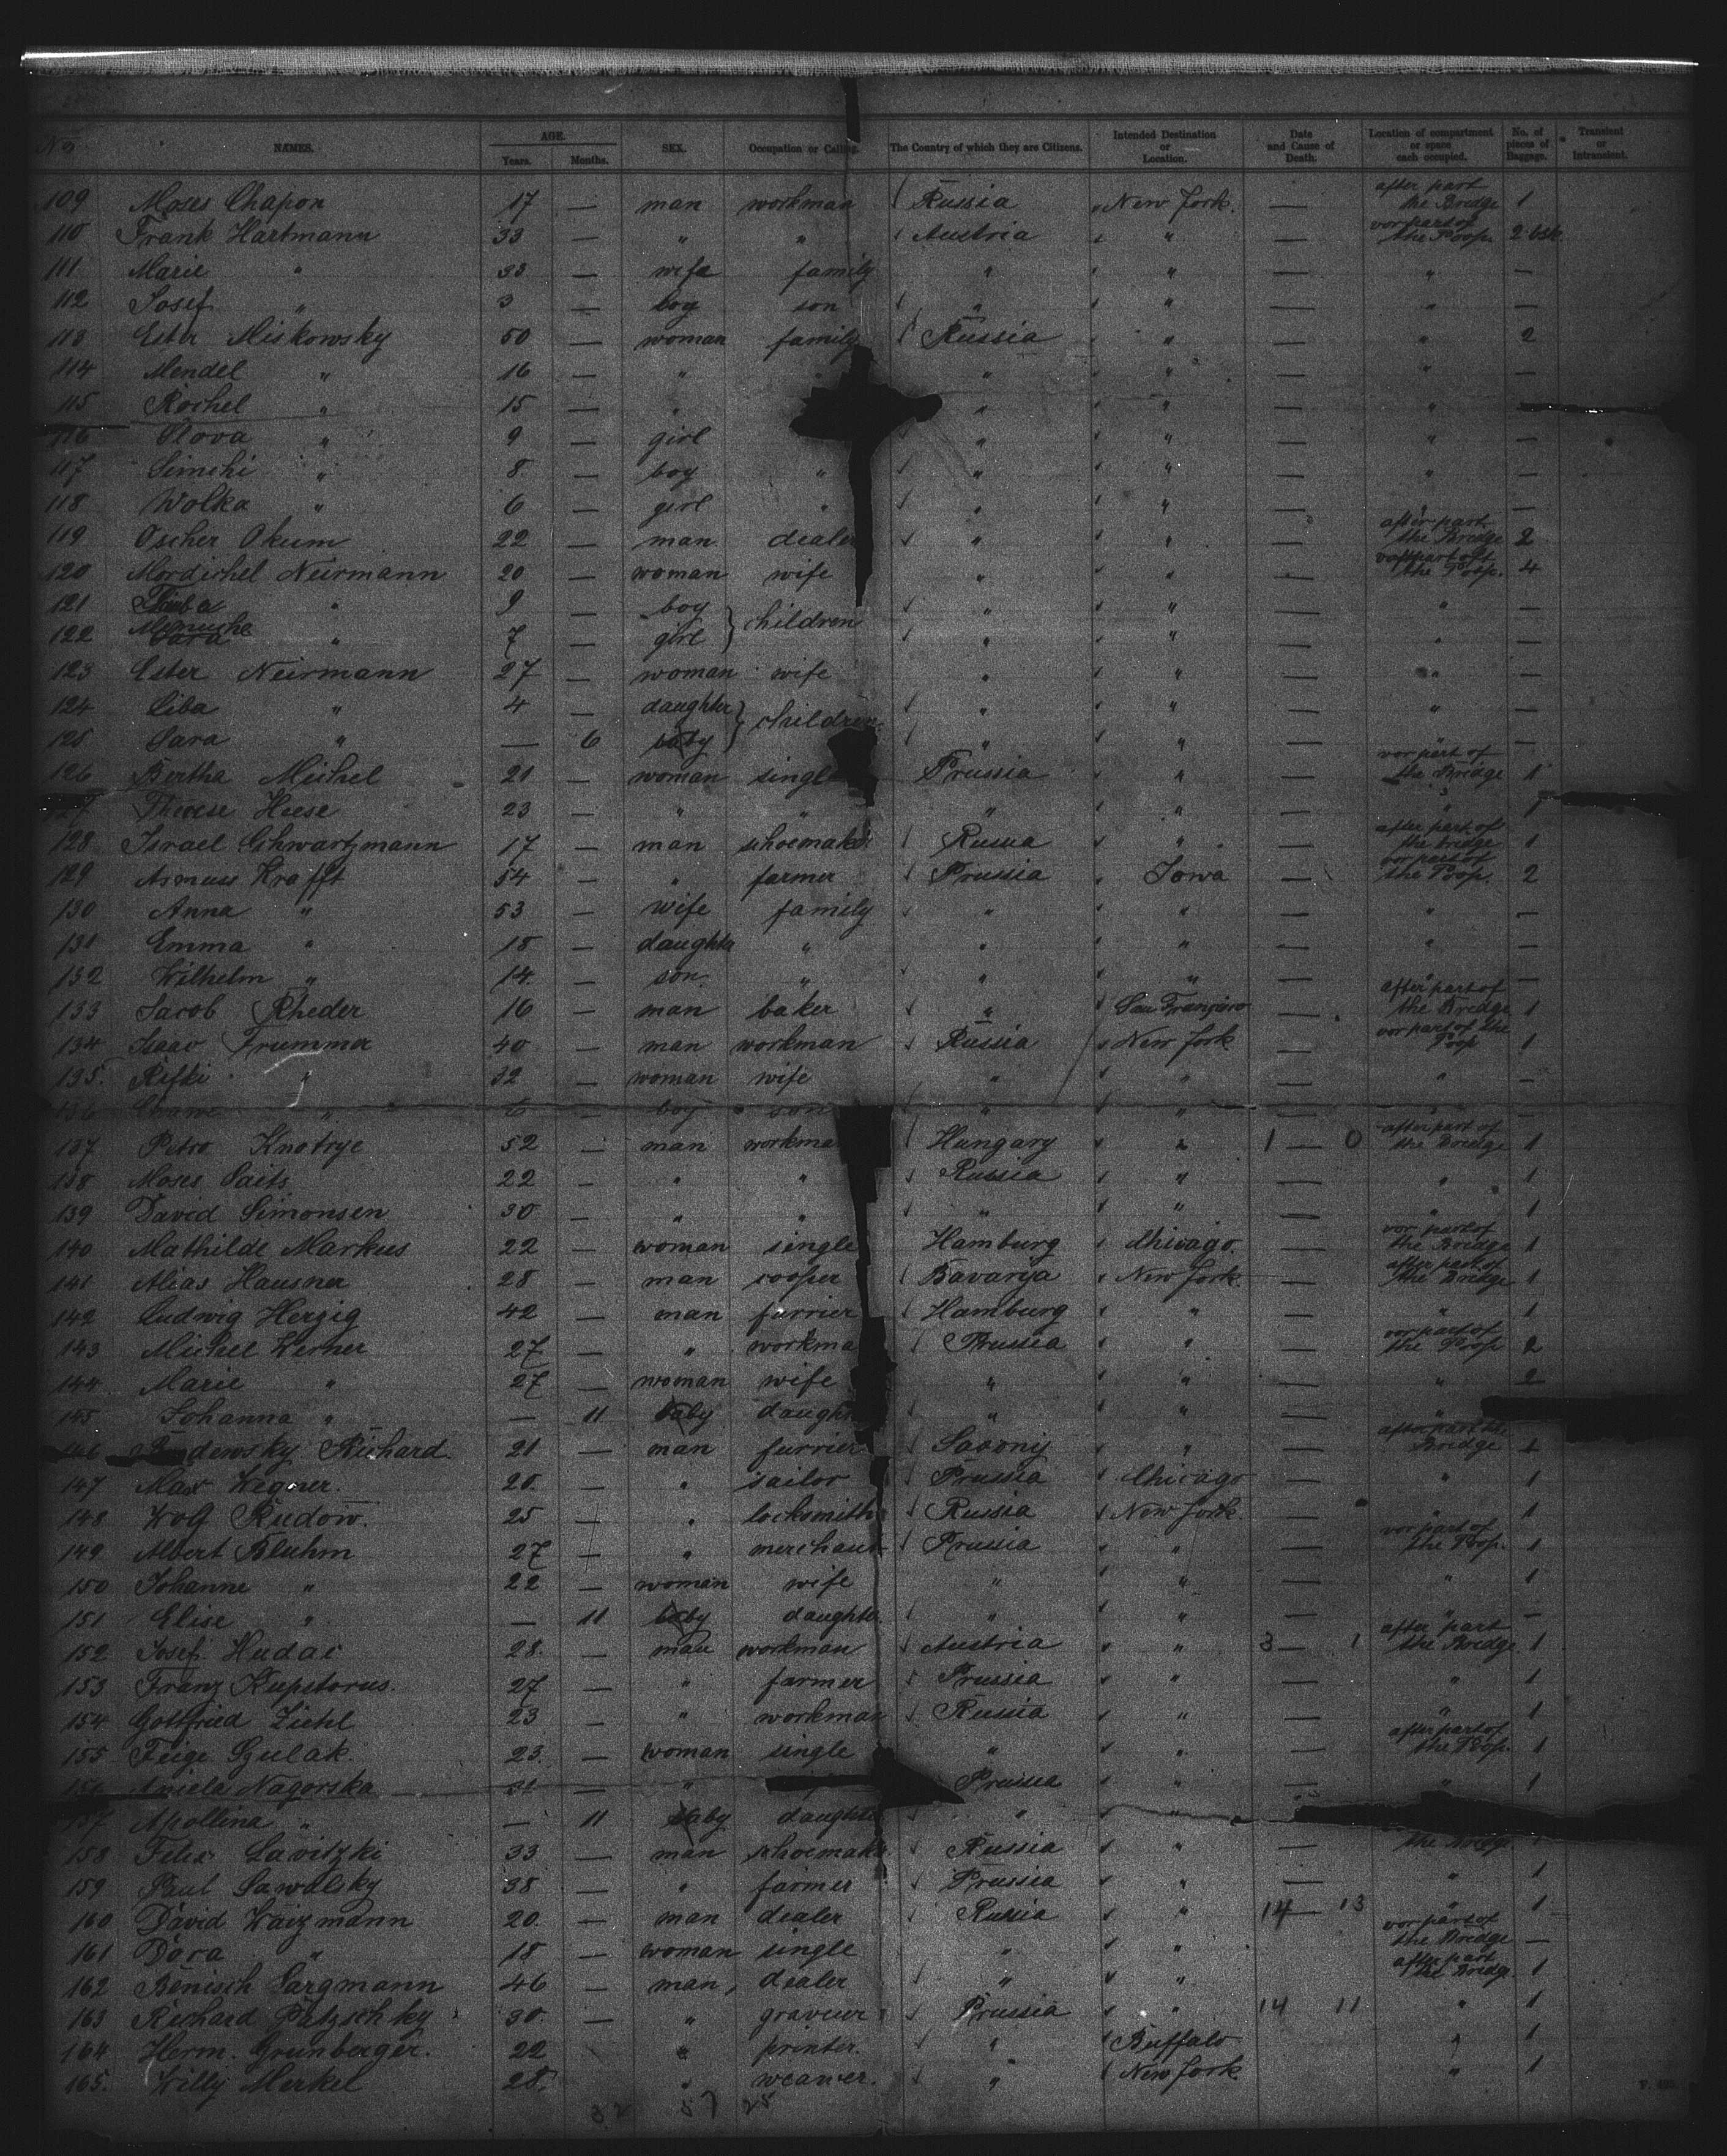 No. NAMES. AGE. Years. Months. SEX. Occupation or Calling. The Country of which they are Citizens. Intended Destination or Location. Date and Cause of Death. Location of compartment or space each occupied. No. of pieces of Baggage. Transient or Intransient.
109 Moses Chapon 17 — man workman Russia New York. — after part the Bridge 1
110 Frank Hartmann 33 — " " Austria " — vor part of the Poop. 2 bsk.
111 Marie " 33 — wife family " " — " —
112 Josef " 3 — boy son " " — " —
113 Ester Miskowsky 50 — woman family Russia " — " 2
114 Mendel " 16 — " " " — " —
115 Rochel " 15 — " " " — " —
116 Slova " 9 — girl " " — " —
117 Simchi " 8. — boy " " " — " —
118 Wolka " 6 — girl " " " — " —
119 Oscher Okum 22 — man deale " " — after part the Bridge 2
120 Mordichel Neirmann 20 — woman wife " " — vor part of the Poop. 4
121 " 9 — boy } children " " — " —
122 Menuche " 7 — girl " " — " —
123 Ester Neirmann 27 — woman wife " " — " —
124 Liba " 4 — daughter } children " " — " —
125 Sara " — 6 baby " " — " —
126 Bertha Michel 21 — woman single Prussia " — vor part of the Bridge 1
127 Therese Heese 23 — " " " " — " 1
128 Israel Schwartzmann 17 — man schoemaker Russia " — after part of the bridge 1
129 Asmuss Krafft 54 — " farmer Prussia Iowa — vor part of the Poop. 2
130 Anna " 53 — wife family " " — " —
131 Emma " 18 — daughter " " " — " —
132 Wilhelm " 14. — son. " " " — " —
133 Jacob Rheder 16 — man baker " San Francisco — after part of the Bridge 1
134 Isaac Frumma 40 — man workman Russia New York — vor part of the Poop 1
135. Rifki " 32 — woman wife " " — " —
136 " 6 — boy son " " — " —
137 Petro Knotrye 52 — man workma Hungary " 1 — 0 after part of the Bridge 1
138 Moses Saits 22 — " " Russia " — " 1
139 David Simonsen 30 — " " " " — " 1
140 Mathilde Markus 22 — woman single Hamburg Chicago. — vor part of the Bridge 1
141 Alias Hausner 28 — man cooper Bavarya New York — after part of the Bridge 1
142 Ludwig Herzig 42 — man furrier Hamburg " — " 1
143 Michel Werner 27 — " workma Prussia " — vor part of the Poop 2
144 Marie " 27 — woman wife " " — " 2
145 Johanna " — 11 baby daught " " — "
146 dewsky Richard. 21 — man furrier Saxony " — after part the Bridge 1
147 Max Wegner. 20. — " sailor Prussia Chicago — " 1
148 Wolf Rudow. 25 — " locksmith Russia New York — " 1
149 Albert Bluhm 27 — " merchant Prussia " — vor part of the Poop. 1
150 Johanne " 22 — woman wife " " — " 1
151 Elise " — 11 baby daughter " " — " —
152 Josef Hudac 28. — man workman Austria " 3 — 1 after part the Bridge 1
153 Franz Kupstorus. 27 — " farmer Prussia " — " 1
154 Gottfried Ziehl 23 — " workman Russia " — " 1
155 Feige Szulak. 23. — woman single " " — after part of the Poop. 1
156 Aniela Nagorska 31 — " Prussia " — " 1
157 Apollina " — 11 baby daughte " "
158 Felix Lavitzki 33 — man schoemake Russia " — the Bridge 1
159 Paul Sawalsky 38 — " farmer Prussia " — " 1
160 David Waizmann 20. — man dealer Russia " 14 — 13 " 1
161 Dora " 18 — woman single " " vor part of the Bridge —
162 Benisch Sargmann 46 — man, dealer " " after part the Bridge. 1
163 Richard Patzschky 30. — " graveur Prussia " 14 11 " 1
164 Herm. Grunberger. 22 " printer. " Buffalo " 1
165. Willy Merkel 28. " weawer. " New York " 1
57 28